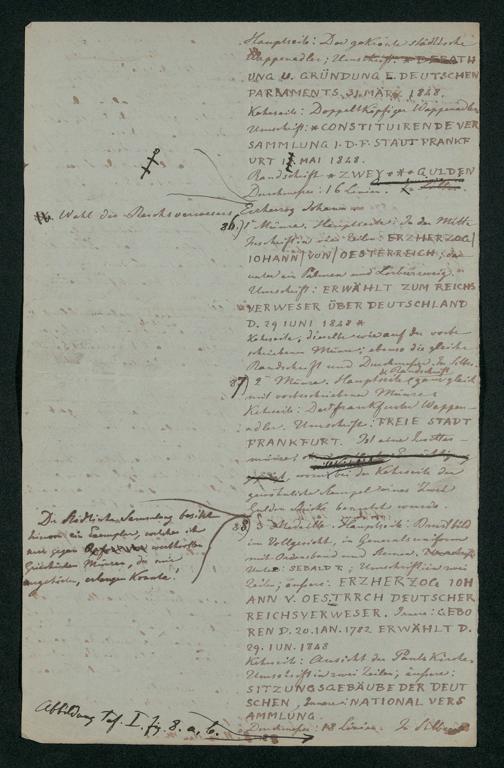 Hauptseite: Der gekrönte städtische
Wappenadler; Umschrift:
UNG U. GRÜNDUNG E. DEUTSCHEN
PARLAMENTS 31. MÄRZ 1848.
Kehrseite: Doppeltköpfiger Wappenadler
Umschrift: * CONSTITUIRENDE VER
SAMMLUNG I. D. F. STADT FRANKF
URT MAI 1848.
Randschrift * ZWEY * * * GULDEN
Durchmesser: 16 Linien.
Wahl des Reichsverwesers Erzherzog Johann
36.) 1e Münze. Hauptseite: In der Mitte
Inschrift in vier Zeilen: ERZHERZOG/
IOHANN/ VON/ OESTERREICH;
unten ein Palmen und Lorbeerzweig.
Umschrift: ERWÄHLT ZUM REICHS
VERWESER ÜBER DEUTSCHLAND
D. 29 IUNI 1848 *
Kehrseite, dieselbe wie auf der vorbe
schriebenen Münze; ebenso die gleiche
Randschrift und Durchmesser. In Silber.
& Randschrift
37) 2e Münze. Hauptseite ganz gleich
mit vorbeschriebener Münze
Kehrseite: Der Frankfurter Wappen-
adler. Umschrift: FREIE STADT
FRANKFURT. Ist eine Zwitter-
münze,
bei der Kehrseite der
gewöhnliche Stempel eines Zwei
Gulden Stücks benutzt wurde.
Die Städtische Sammlung besitzt
hievon ein Exemplar, welches ich
nur gegen werthvollen
Griechischen Münzen, die mir
angehörten, erlangen konnte.
38) 3. Medaille. Hauptseite: Brustbild
im Vollgesicht, in Generalsuniform
mit Ordensband und Sternen.
Unten: SEBALD F.; Umschrift in zwei
Zeilen; äussere: ERZHERZOG IOH
ANN V. OESTRRCH DEUTSCHER
REICHSVERWESER. Innere: GEBO
REN D. 20. IAN. 1782 ERWÄHLT D.
29. IUN. 1848
Kehrseite: Ansicht der Pauls Kirche.
Umschrift in zwei Zeilen; äussere:
SITZUNGSGEBÄUBE DER DEUT
SCHEN, Innere: NATIONAL VERS
AMMLUNG.
Durchmesser: 18 Linien. In Silber
Abbildung Taf. I. fig. 8. a, b.